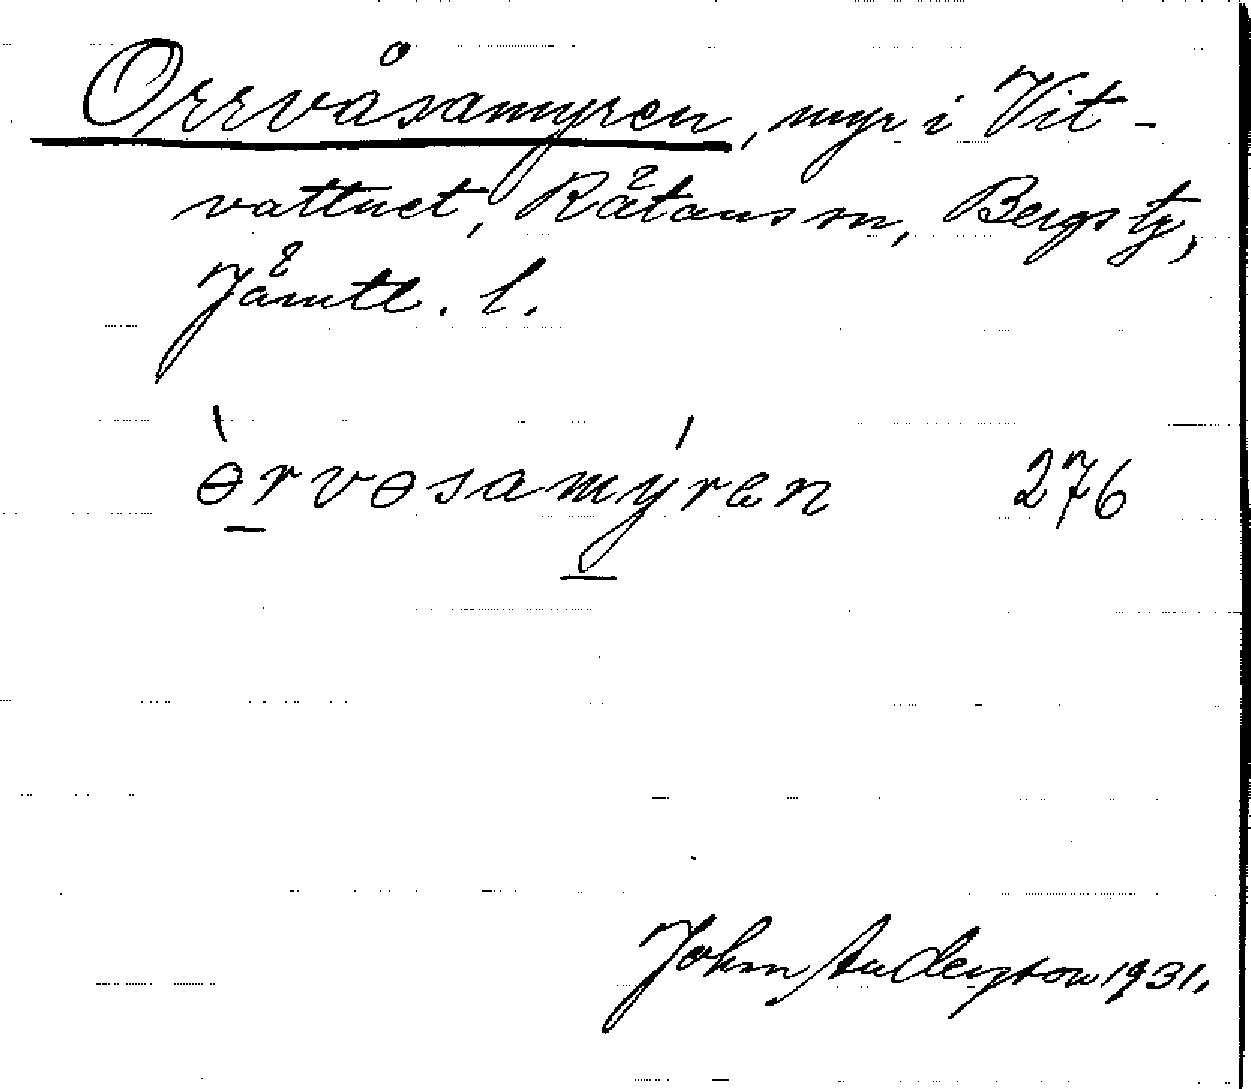 Orrvåsamyren, myr i Vit-
vattnet, Rätans sn, Bergs tg,
Jämtl. l.
ɵ̀rvɵsamýren 276
John Anderson 1931.